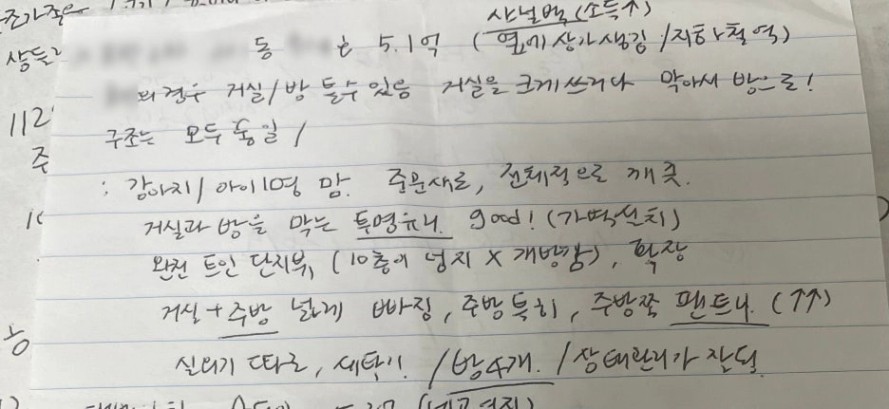 샤넬백(소득↑)
동 은 5.1억 (옆에 상가생김/지하철역)
의 경우 거실/방 틀수있음 거실을 크게쓰거나 막아서 방으로!
112
구조는 모두 동일/
주
: 강아지/아이1명 맘. 주문새로, 전체적으로 깨끗.
거실과 방을 막는 투명유리. good! (가벽설치)
완전 트인 단지뷰, (10층이 넘지 X 개방감), 확장
거실+주방 넓게 빠짐, 주방특히, 주방쪽 팬트리. (↑↑)
실외기 따로, 세탁기. /방4개. /상태관리가 잘됨